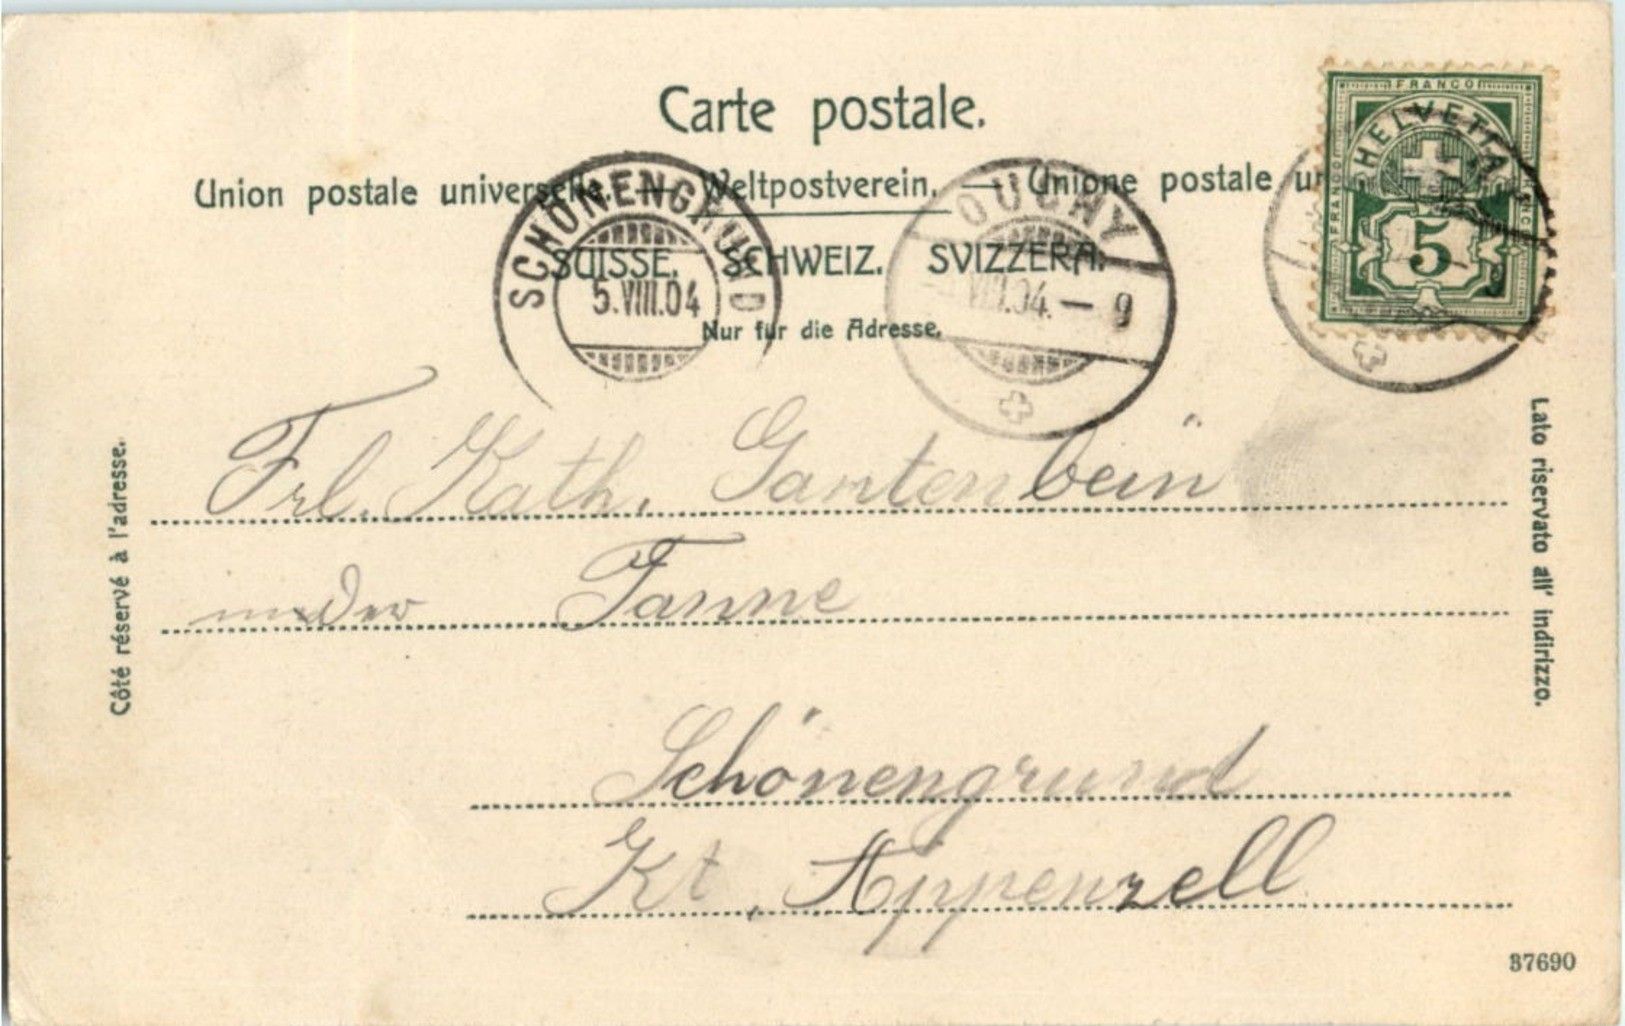 Carte postale.
Union postale universelle. — Weltpostverein. — Unione postale
SUISSE. SCHWEIZ. SVIZZERA.
Nur für die Adresse.
SCHÖNENGRUND
5.VIII.04
OUCHY
VIII.04. — 9
FRANCO
HELVETIA
FRANCO
5
Côté réservé à l'adresse.
Lato riservato all' indirizzo.
Frl. Kath. Gantenbein
Tanne
Schönengrund
Kt. Appenzell
37690